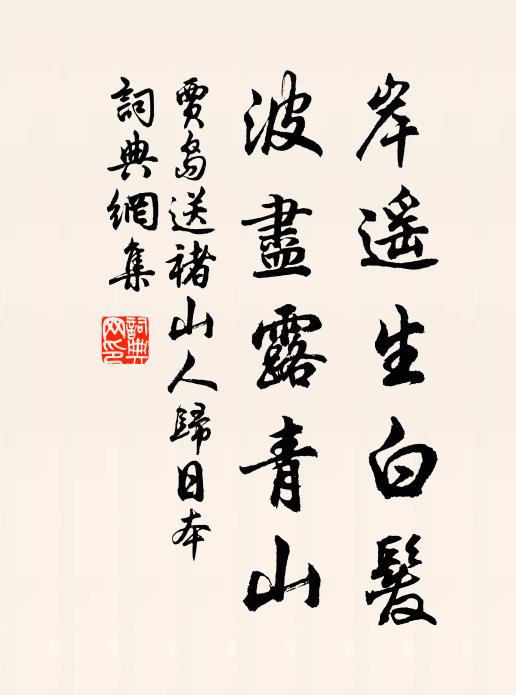 岸遥生白髮
波盡露青山
賈島送褚山人歸日本
詞典網集
詞典网印